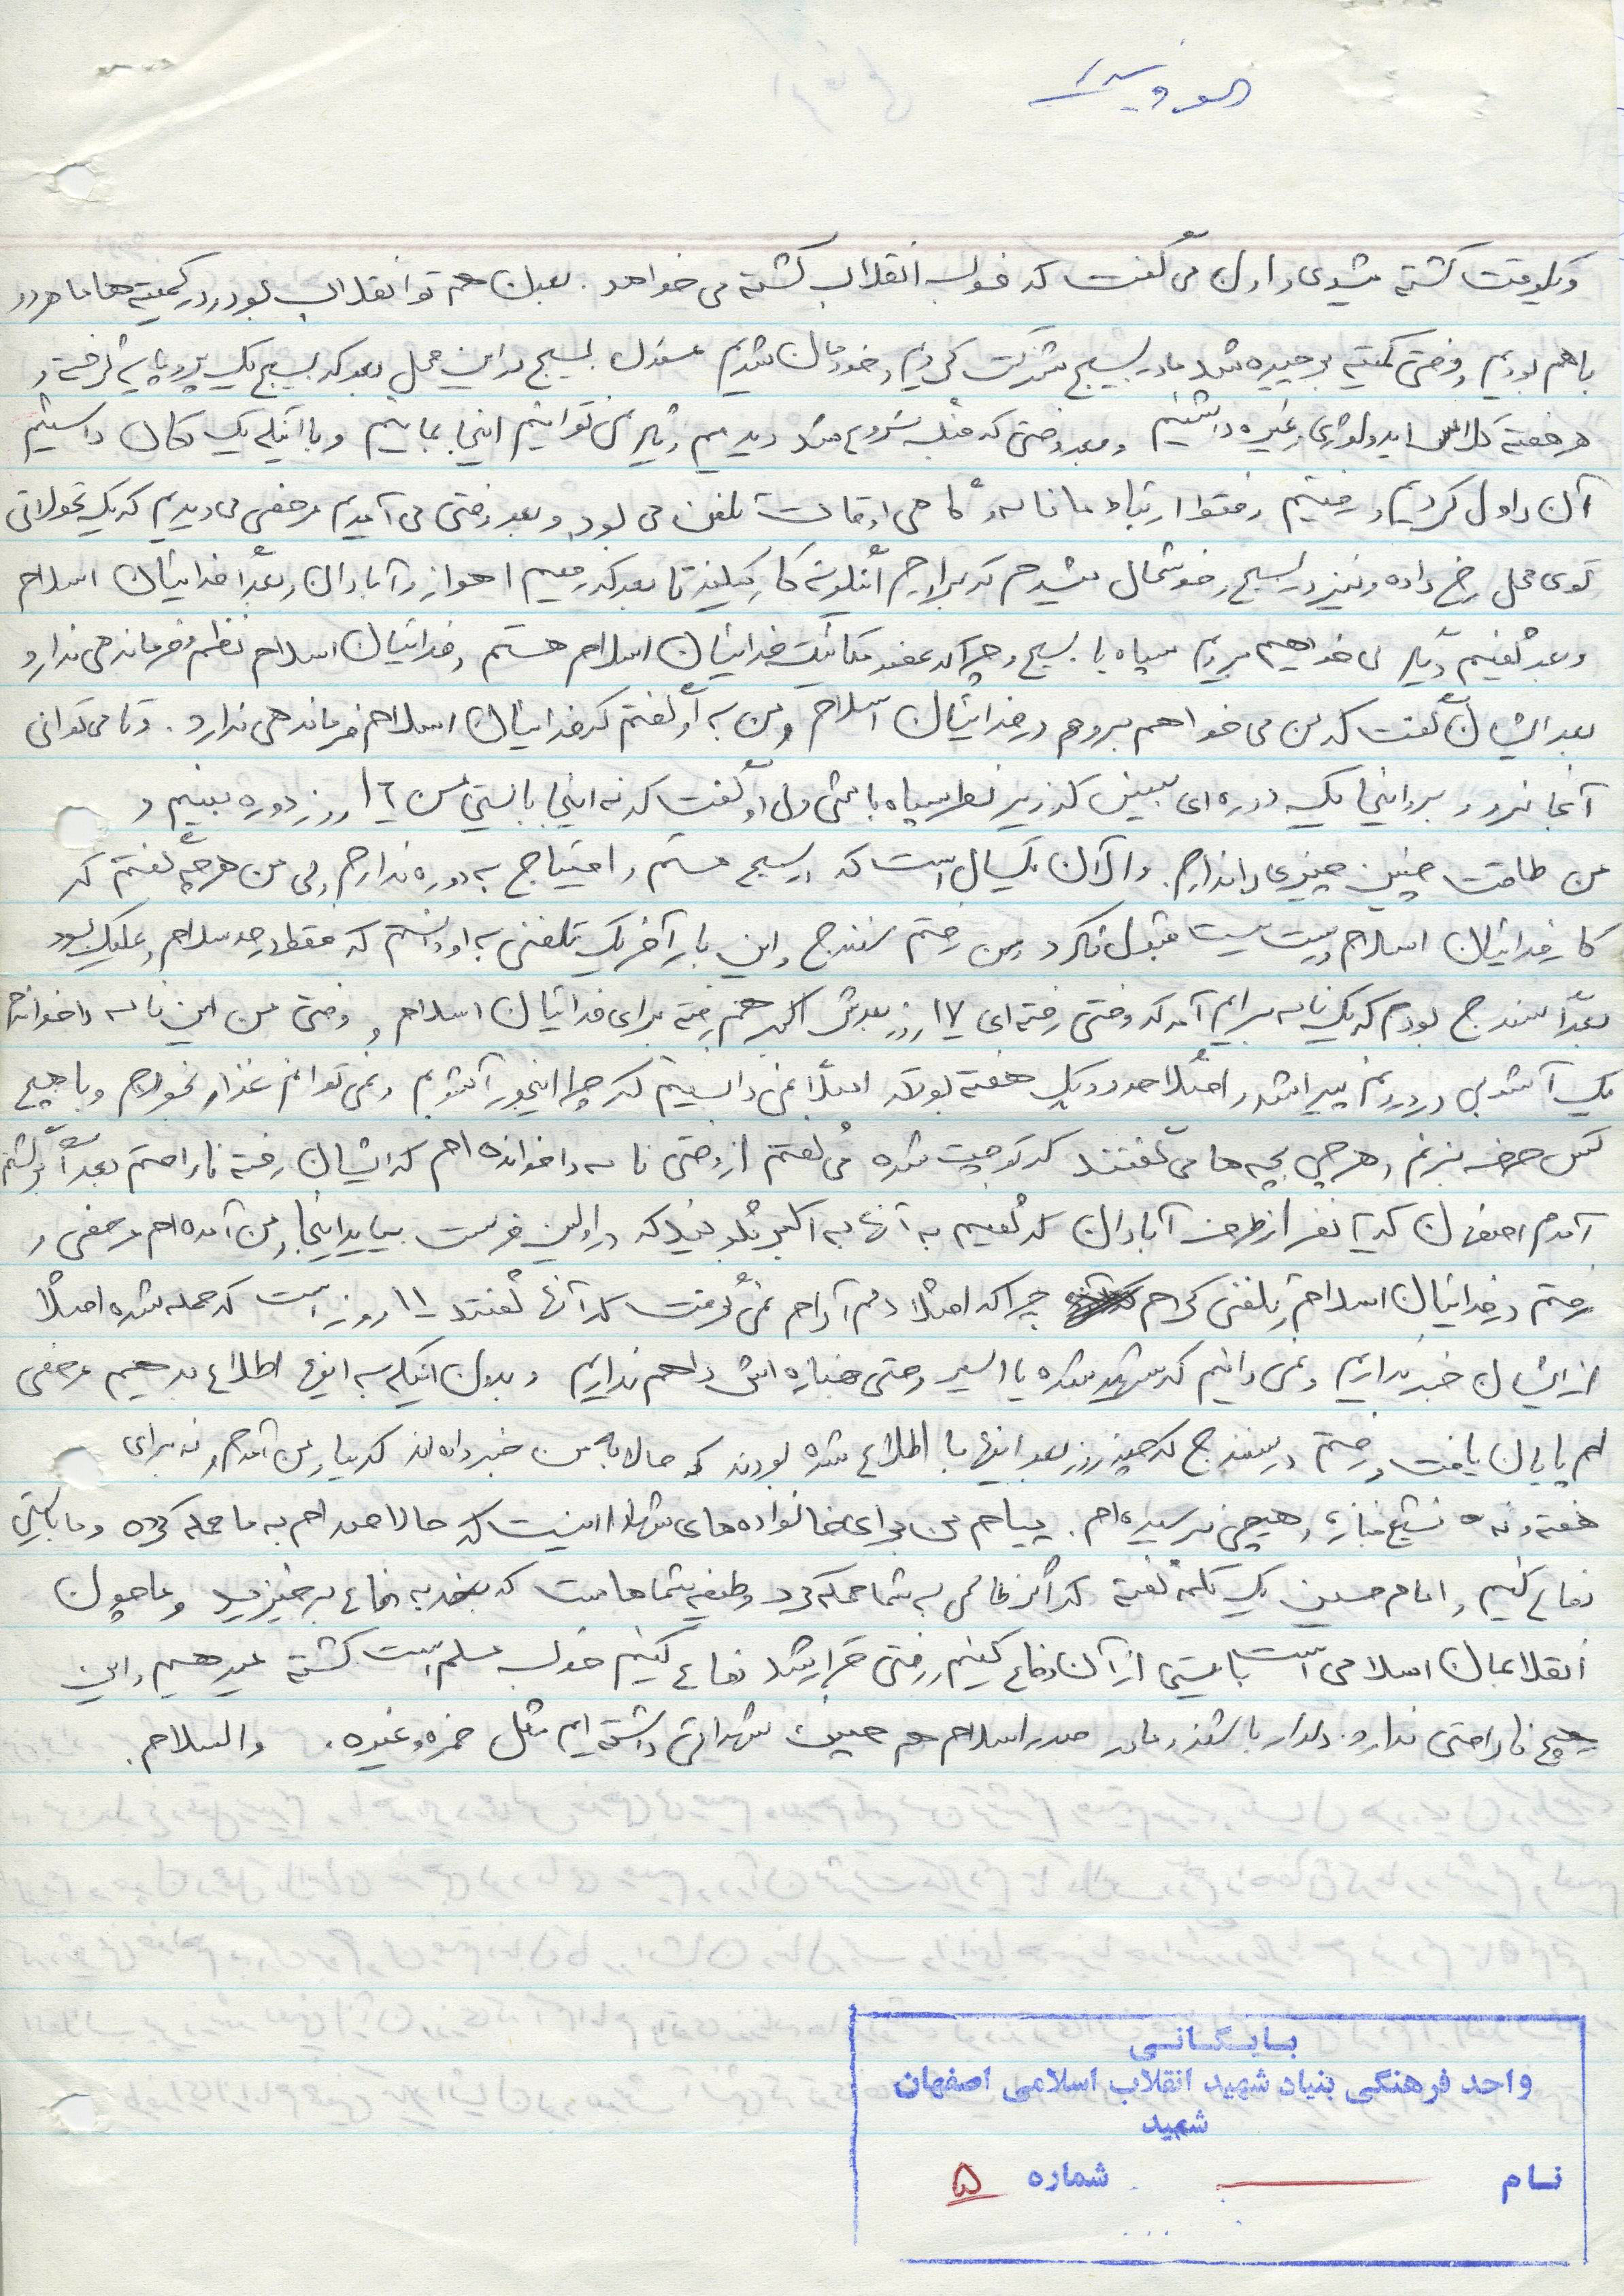 ویکوقت کشته میشوی و اول می گفت که خوب انقلاب کشته می خواهد. بعدن هم تو انقلاب بود و در کمیته ها ما هر دو
با هم بودیم وقتی کمیته برچیده شد ما در بسیج شرکت کردیم و خودمان شدیم مسئول بسیج در این محل بعد که بسیج یک پر و پایه گرفته و
هر هفته کلاس ایدولوژی و غیره داشتیم و بعد وقتی که جنگ شروع شد دیدیم دیگر نمی توانیم اینجا بمانیم و با اینکه یک دکان داشتیم
آن را ول کردیم و رفتیم و فقط ارتباط ما نامه و گاهی اوقات تلفن می بود و بعد وقتی می آمدیم مرخصی می دیدیم که یک تحولاتی
توی محل رخ داده و نیز در بسیج و خوشحال میشدم که برادرم اینگونه کار میکند تا بعد که رفتیم اهواز و آبادان و بعداً فدائیان اسلام
و بعد گفتیم دیگر می خواهیم برویم سپاه یا بسیج و چرا که عضو فدائیان اسلام هستم و فدائیان اسلام نظم و فرماندهی ندارد
بعد ایشان گفت که من می خواهم بروم در فدائیان اسلام و من به او گفتم که فدائیان اسلام فرماندهی ندارد. و تا می توانی
آنجا نرو و برو اینجا یک دوره ای ببین که زیر نظر سپاه باشی ولی او گفت که نه اینجا بایستی من ۱٦ روز دوره ببینم و
من طاقت چنین چیزی را ندارم. و الآن یکسال است که در بسیج هستم و احتیاج به دوره ندارم ولی من هرچه گفتم که
کار فدائیان اسلام درست نیست قبول نکرد و من رفتم سنندج و این بار آخر یک تلفنی به او داشتم که فقط در حد سلام و علیک بود
بعداً سنندج بودم که یک نامه برایم آمد که وقتی رفته ای ۱۷ روز بعدش اکبر هم رفته برای فدائیان اسلام و وقتی من این نامه را خواندم
یک آشوبی در درونم پیدا شد و اصلاً حدود یک هفته بود که اصلاً نمی دانستم که چرا اینجور آشوبم و نمی توانم غذا بخورم و با هیچ
کس حرف بزنم و هر چی بچه ها می گفتند که تو چت شده می گفتم از وقتی نامه را خوانده ام که ایشان رفته ناراحتم بعداً برگشتم
آمدم اصفهان که نفر از طرف آبادان که گفتیم به آنها به اکبر بگوئید که در اولین فرصت بیاید اینجا و من آمده ام مرخصی و
رفتم در فدائیان اسلام و تلفنی کردم چرا که اصلاً دلم آرام نمی گرفت که آنها گفتند ۱۱ روز است که حمله شده اصلاً
از ایشان خبر نداریم و نمی دانیم که شهید شده یا اسیر و حتی جنازه اش را هم نداریم و بدون اینکه به اینها اطلاع بدهیم مرخصی
ام پایان یافت و رفتم در سنندج که چند روز بعد اینها با اطلاع شده بودند که حالا به من خبر داده اند که بیا و من آمدم و نه برای
هفته و نه تشیع جنازه و هیچی نرسیده ام. پیام من برای خانواده های شهدا اینست که حالا صدام به ما حمله کرده و ما بایستی
دفاع کنیم و امام حسین یک کلمه گفته که اگر ظالمی به شما حمله کرد وظیفه شماهاست که به دفاع برخیزید و ما چون
انقلابمان اسلامی است بایستی از آن دفاع کنیم و وقتی قرار شد دفاع کنیم خوب مسلم است کشته میدهیم و این
هیچ ناراحتی ندارد. دلدار باشند و ما در صدر اسلام هم چنین شهدائی داشته ایم مثل حمزه و غیره. والسلام.
بایگانی
واحد فرهنگی بنیاد شهید انقلاب اسلامی اصفهان
شهید
نام شماره ۵